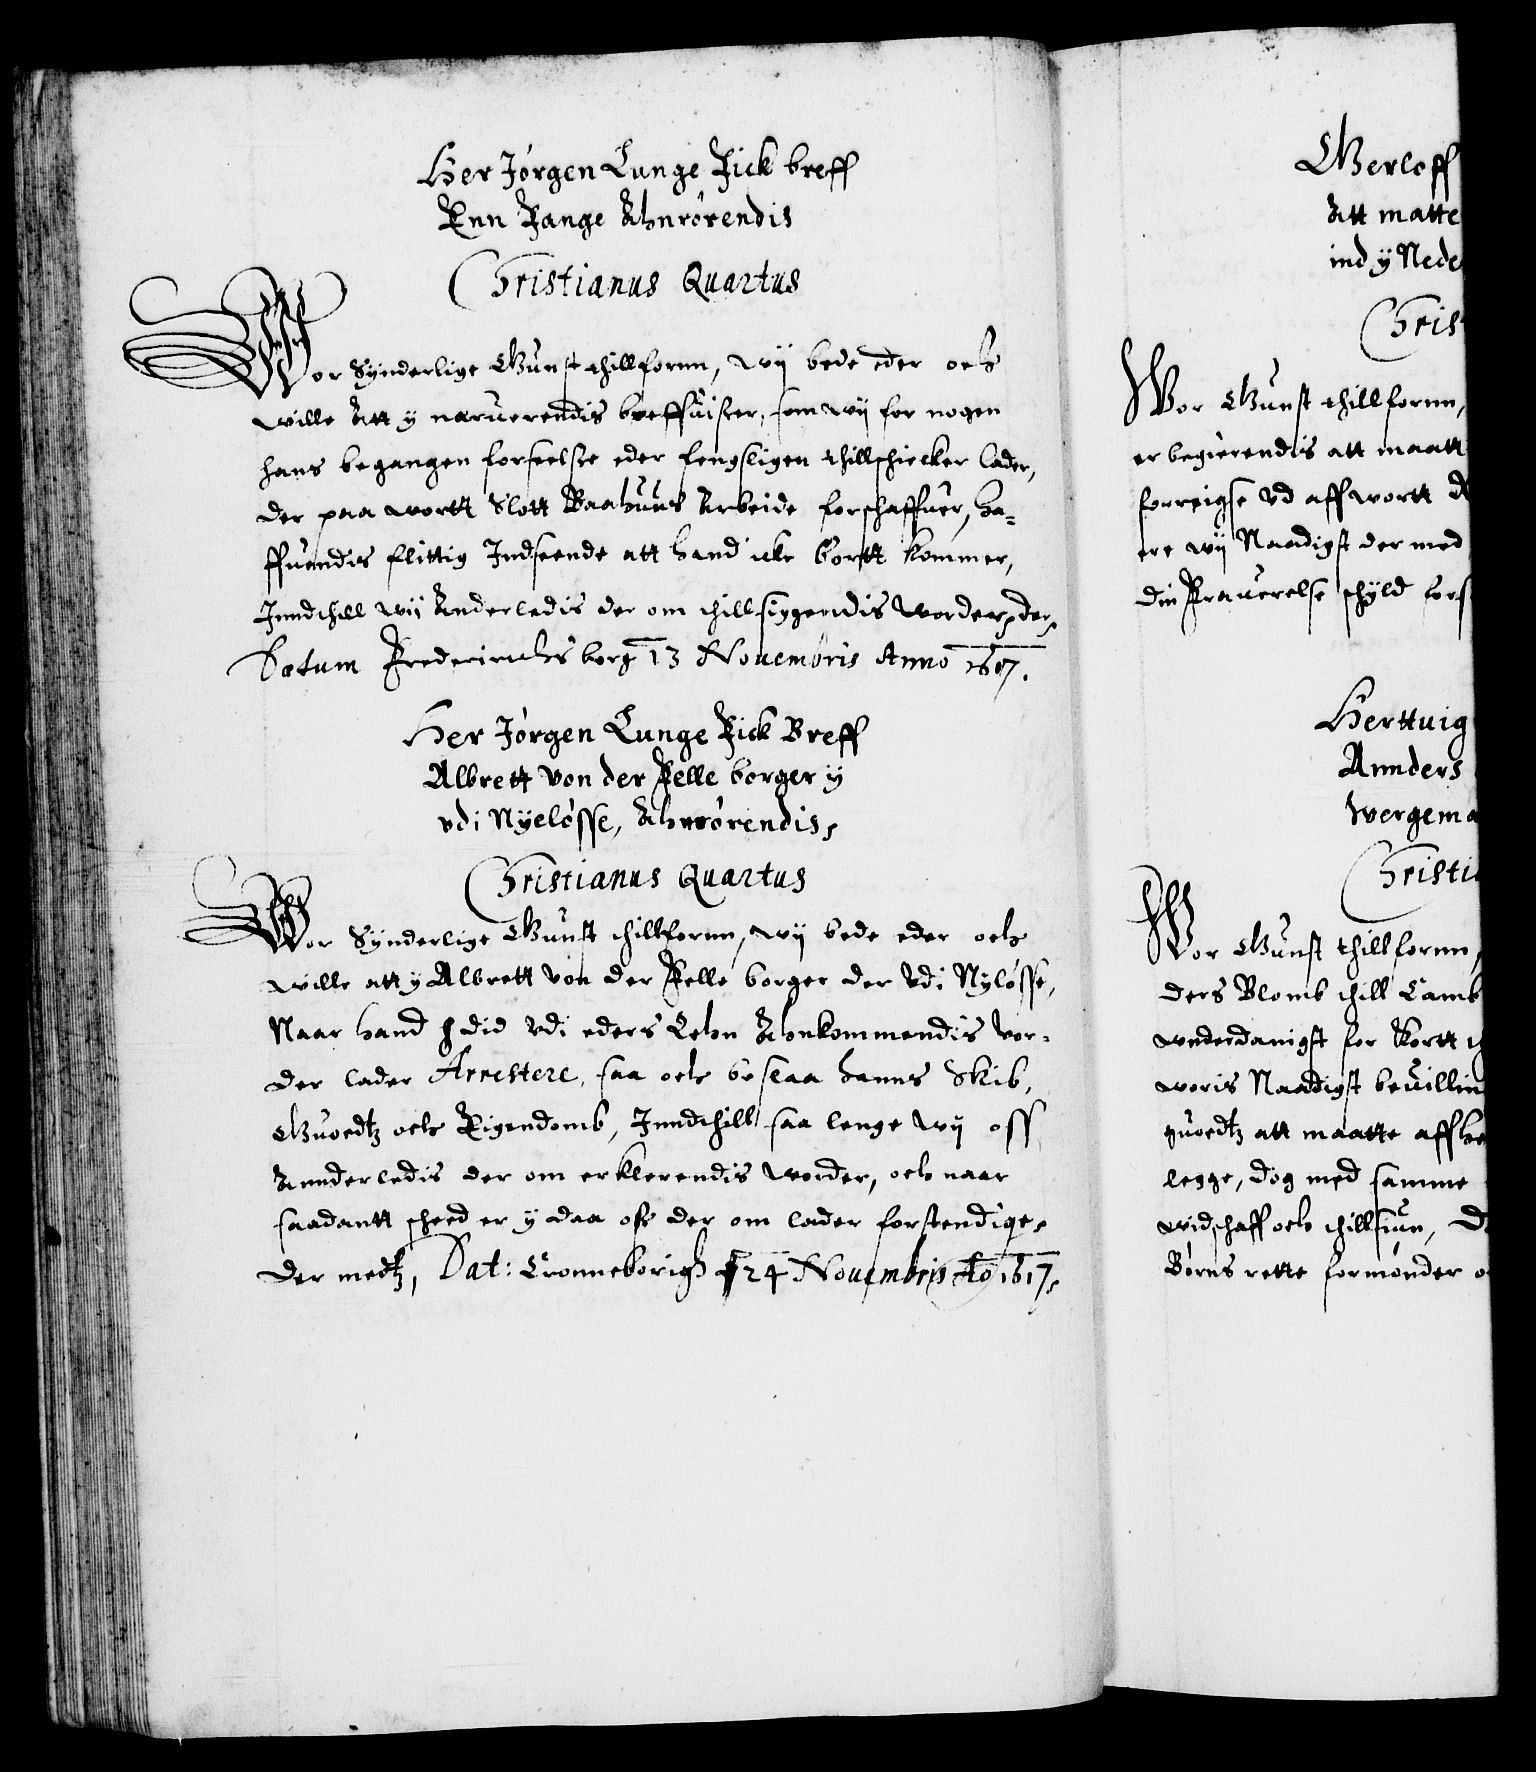 Her Jörgen Lunge Fick breff
Enn Fange Ahnrörendis
Christianus Quartus
Wor Synderlige Gunst thillfornn, wij bede eder och
wille Att y neruerendis breffuiser, som wij for nogen
hans begangen forseelse eder fengsligen thillschicker lader,
der paa wortt Slott Baahuus Arbeide forschaffuer, ha-
ffuendis flittig Indseende att hand icke bortt kommer,
Inndthill wij Anderledis der om thillsigendis worder, der
Datum Frederichsborg 13 Nouembris Anno 1617.
Her Jörgen Lunge Fick Breff
Albrett von der Felle borger y
vdi Nyelösse, Ahnrörendis,
Christianus Quartus
Wor Synderlige Gunst thillfornn, wij bede eder och
wille att y Albrett von der Felle borger der vdi Nylösse,
Naar hand did vdi eders Lehn Ahnkommendis vor-
der lader Arrestere, saa och beslaa hanns Skib,
Guoedtz och Eigendomb, Inndthill saa lenge wij oss
Annderledis der om erklerendis worder, och naar
saadantt scheed er y daa oss der om lader forstendige,
der medtz, Dat: Cronneborigh 24 Nouembris Ao 1617,
Gerloff
Att matte
ind y Nede
Christ
Wor Gunst thillfornn,
er begierendis att maatt
forreigse vd aff wortt
ere wij Naadigst der med
din Frauerelse schyld fors
Herttuig
Annders
wergema
Christi
Wor Gunst thillfornn,
ders Blomb thill Lamb
wnderdanigst for Kortt
woris Naadigst beuillin
guoedtz att maatte aff he
legge, dog med samme
widschaff och thillsiun, D
Börns rette formönder